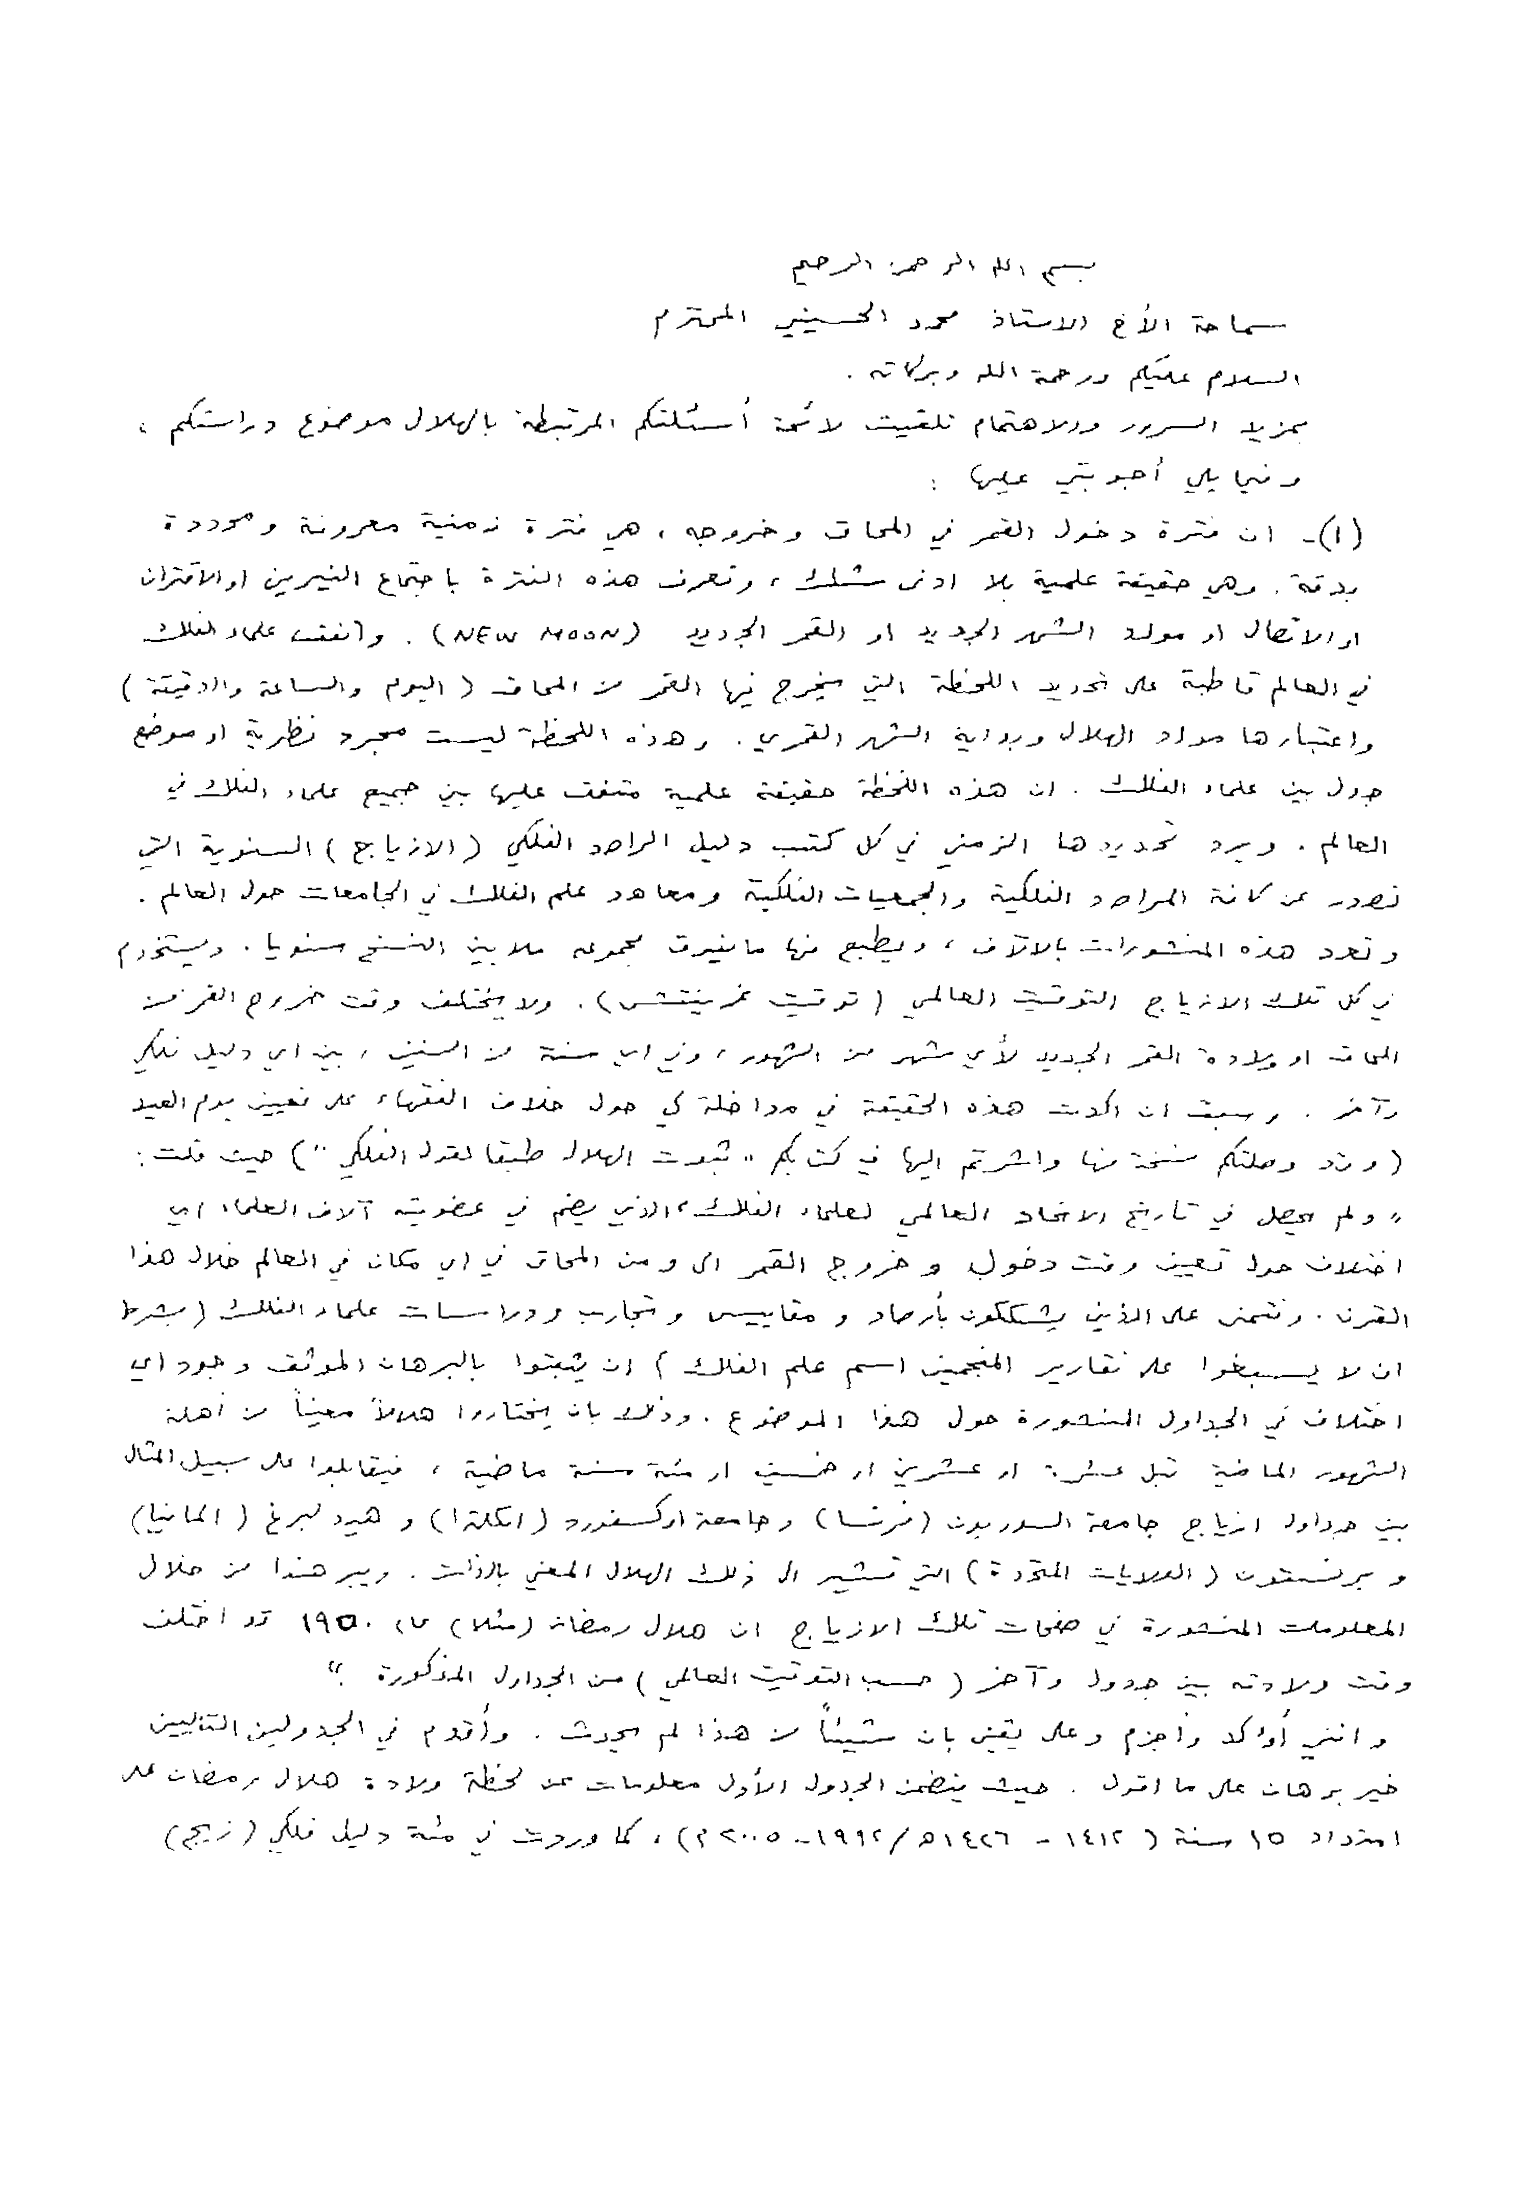 بسم الله الرحمن الرحيم
سماحة الأخ الاستاذ محمد الحسيني المحترم
السلام عليكم ورحمة الله وبركاته .
بمزيد السرور والاهتمام تلقيت لائحة أسئلتكم المرتبطة بالهلال موضوع دراستكم ،
وفيما يلي أجوبتي عليها :
(١)- ان فترة دخول القمر في المحاق وخروجه ، هي فترة زمنية معروفة ومحددة
بدقة . وهي حقيقة علمية بلا ادنى شك ، وتعرف هذه الفترة باجتماع النيرين او الاقتران
او الاتصال او مولد الشهر الجديد او القمر الجديد (NEW MOON) . واتفق علماء الفلك
في العالم قاطبة على تحديد اللحظة التي يخرج فيها القمر من المحاق ( اليوم والساعة والدقيقة )
واعتبارها مولد الهلال وبداية الشهر القمري . وهذه اللحظة ليست مجرد نظرية او موضع
جدل بين علماء الفلك . ان هذه اللحظة حقيقة علمية متفق عليها بين جميع علماء الفلك في
العالم . ويرد تحديدها الزمني في كل كتب دليل الراصد الفلكي ( الازياج ) السنوية التي
تصدر عن كافة المراصد الفلكية والجمعيات الفلكية ومعاهد علم الفلك في الجامعات حول العالم .
وتعد هذه المنشورات بالآلاف ، ويطبع منها ما يفوق مجموعه ملايين النسخ سنويا . ويستخدم
في كل تلك الازياج التوقيت العالمي ( توقيت غرينتش ) . ولا يختلف وقت خروج القمر من
المحاق او ولادة القمر الجديد لأي شهر من الشهور ، وفي اي سنة من السنين ، بين اي دليل فلكي
وآخر . وسبق ان اكدت هذه الحقيقة في مداخلة لي حول خلاف الفقهاء على تعيين يوم العيد
( وقد وصلتكم نسخة منها واشرتم اليها في كتابكم " ثبوت الهلال طبقا لقول الفلكي " ) حيث قلت :
" ولم يحصل في تاريخ الاتحاد العالمي لعلماء الفلك ، الذي يضم في عضويته آلاف العلماء اي
اختلاف حول تعيين وقت دخول وخروج القمر الى ومن المحاق في اي مكان في العالم خلال هذا
القرن . ونتمنى على الذين يشككون بأرصاد ومقاييس وتجارب ودراسات علماء الفلك ( بشرط
ان لا يسبغوا على تقارير المنجمين اسم علم الفلك ) ان يثبتوا بالبرهان الموثق وجود اي
اختلاف في الجداول المنشورة حول هذا الموضوع . وذلك بان يختاروا هلالاً معيناً من أهلة
الشهور الماضية قبل عشرة او عشرين او خمسين او مئة سنة ماضية ، فيقابلوا على سبيل المثال
بين جداول ازياج جامعة السوربون ( فرنسا ) وجامعة اوكسفورد ( انكلترا ) وهيدلبرغ ( المانيا )
وبرنستون ( الولايات المتحدة ) التي تشير الى ذلك الهلال المعني بالذات . ويبرهنوا من خلال
المعلومات المنشورة في صفحات تلك الازياج ان هلال رمضان ( مثلا ) عام ١٩٥٠ قد اختلف
وقت ولادته بين جدول وآخر ( حسب التوقيت العالمي ) من الجداول المذكورة . "
وانني أؤكد وأجزم وعلى يقين بان شيئاً من هذا لم يحدث . وأقدم في الجدولين التاليين
خير برهان على ما اقول . حيث يتضمن الجدول الأول معلومات عن لحظة ولادة هلال رمضان على
امتداد ١٥ سنة ( ١٤١٢ - ١٤٢٦ه/١٩٩٢-٢٠٠٥م ) ، كما وردت في مئة دليل فلكي ( زيج )